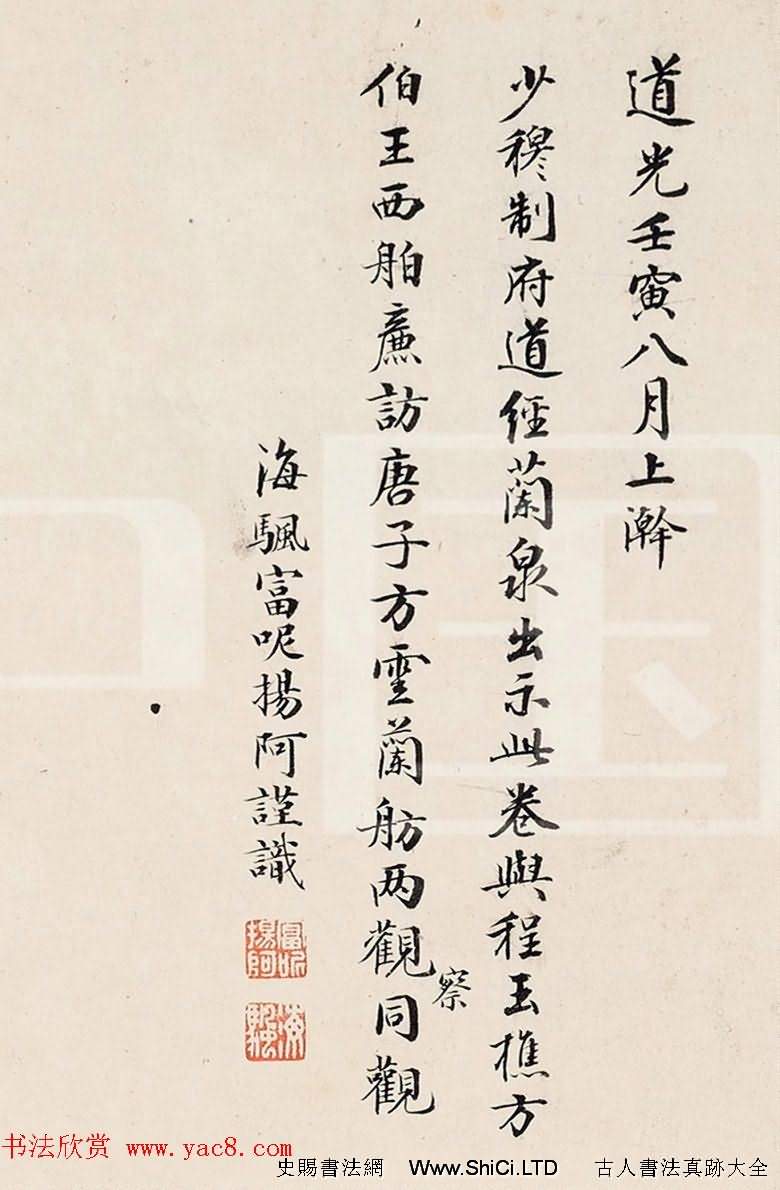 道光壬寅八月上澣
少穆制府道經蘭泉出示此卷與程玉樵方
伯王西舶廉訪唐子方雲蘭舫两觀同觀
察
海颿富呢揚阿謹識
富呢揚阿
海颿
书法欣赏 www.yac8.com
史賜書法網 Www.ShiCi.LTD 古人書法真跡大全